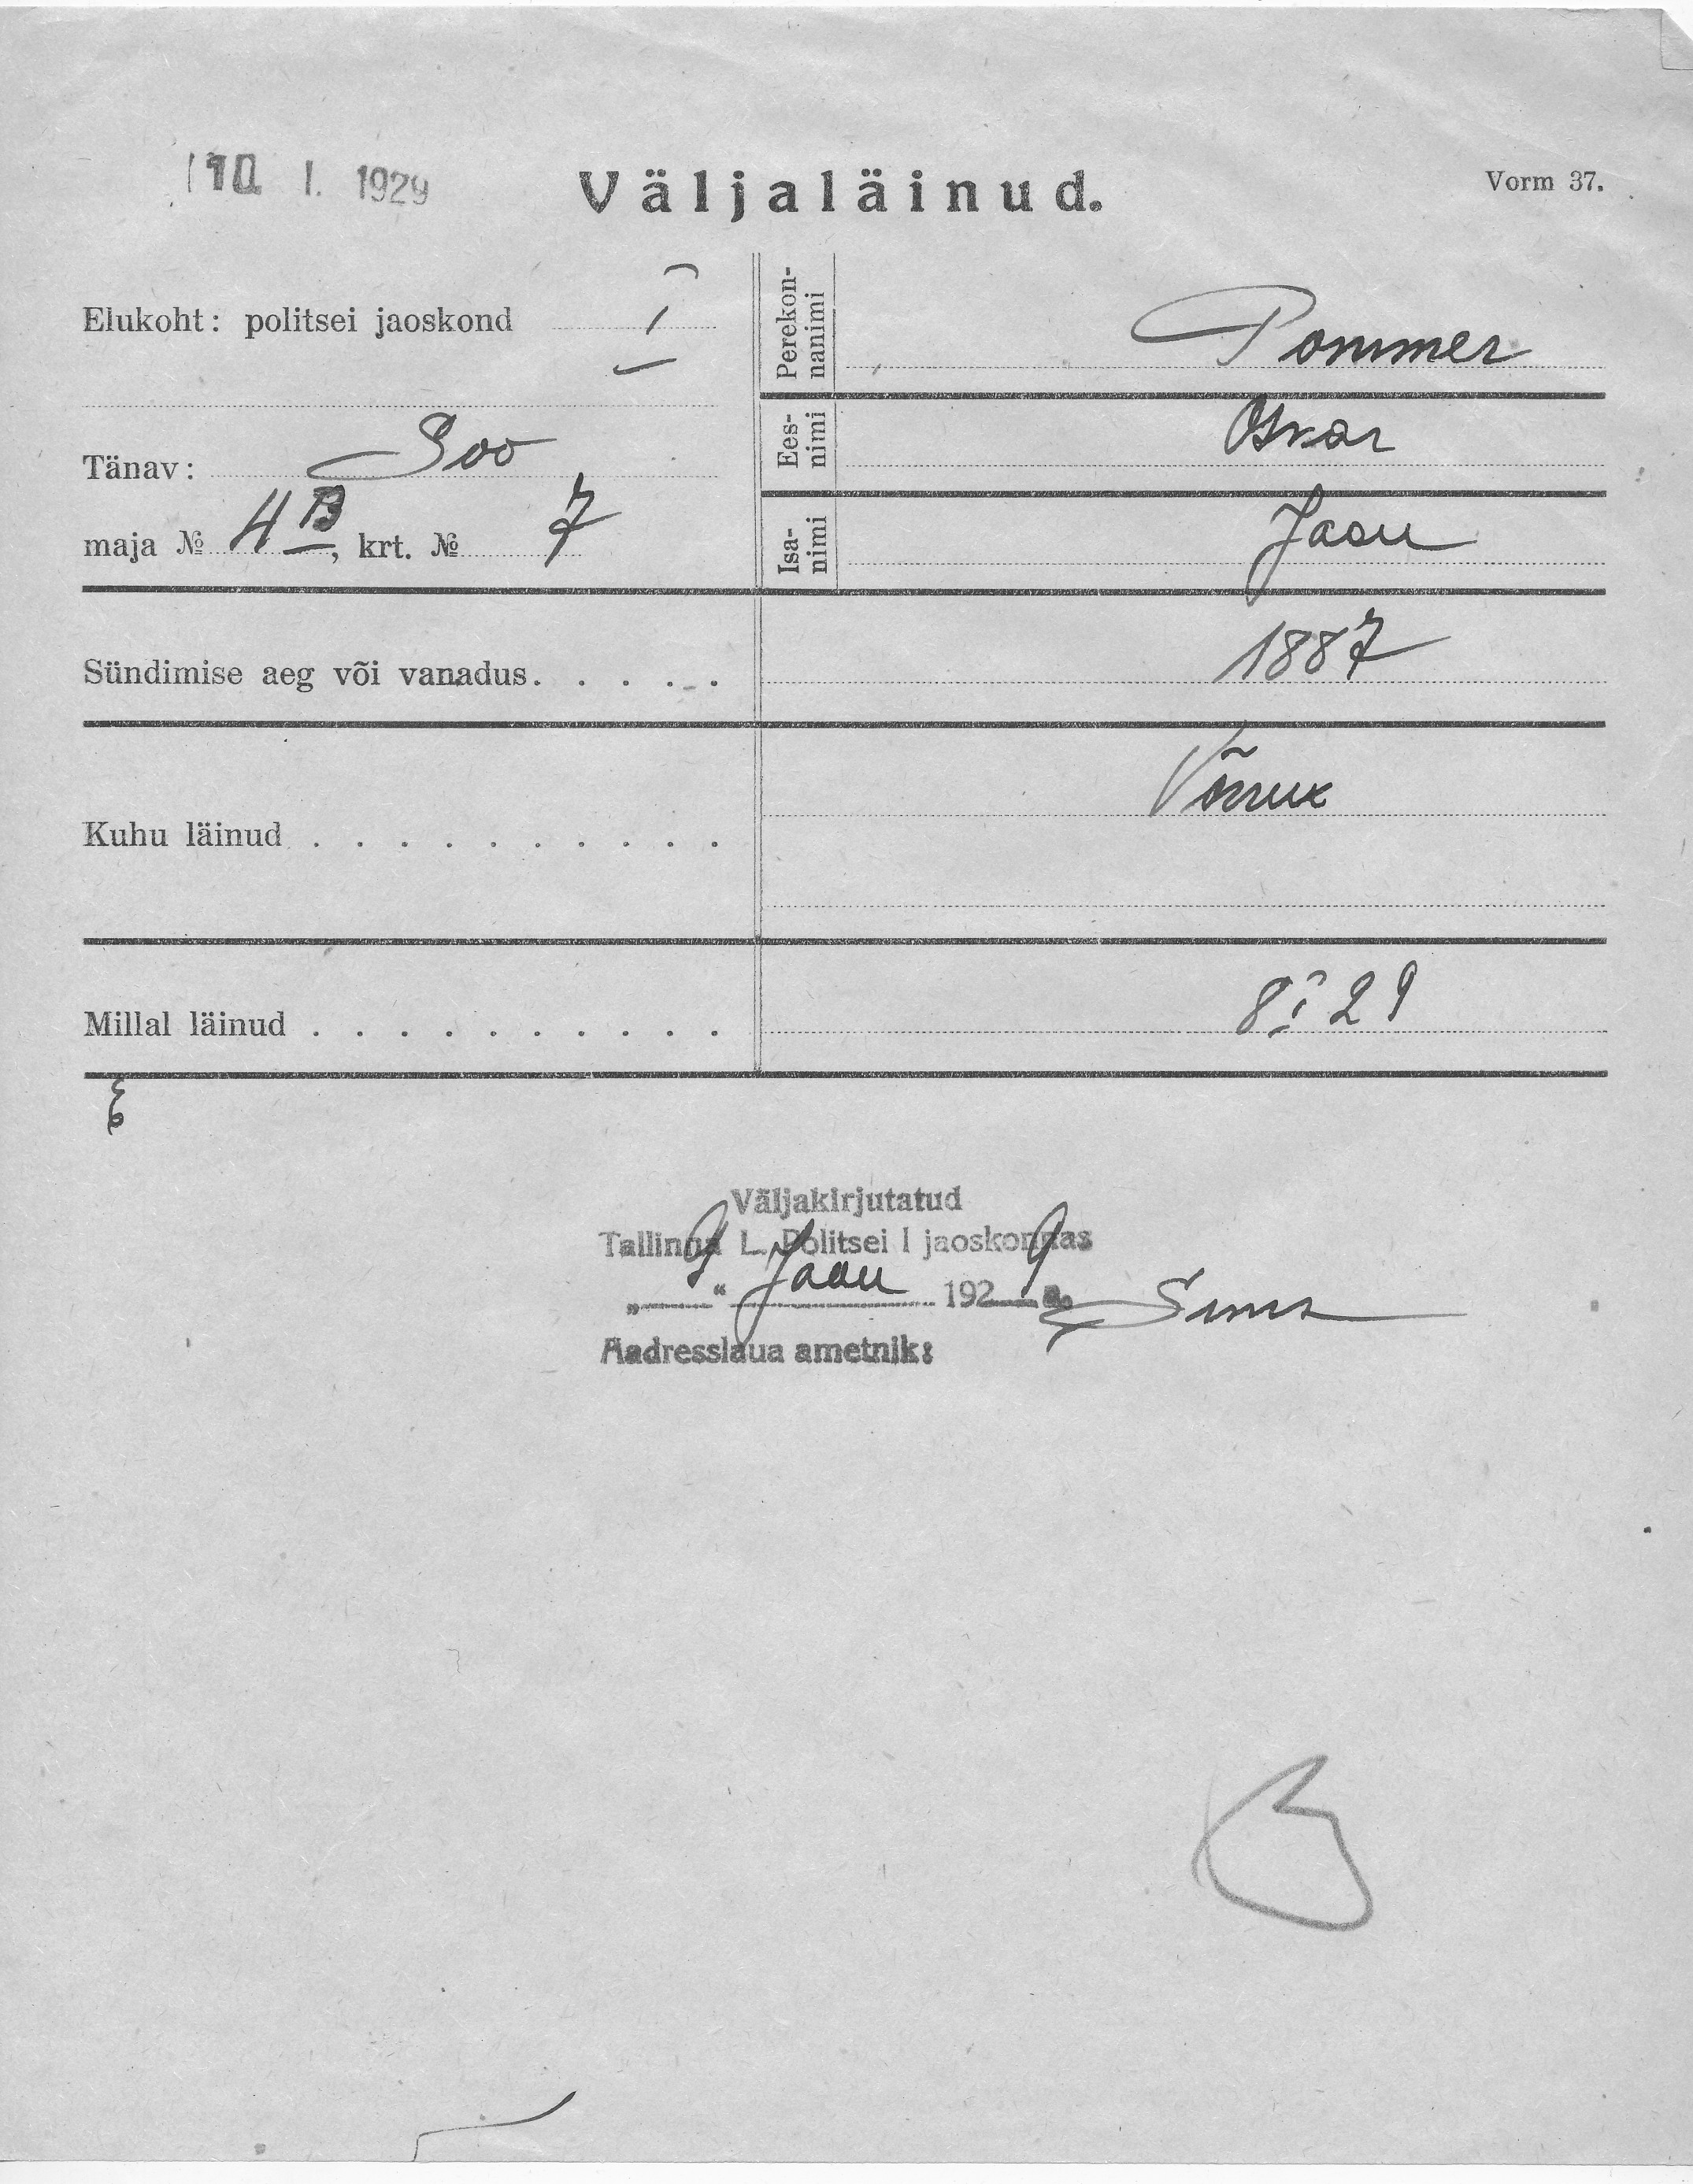 10. I. 1929
Väljaläinud.
Vorm 37.
Elukoht: politsei jaoskond I
Tänav: Soo
maja № 4B, krt. № 7
Perekon-
nanimi
Pommer
Ees-
nimi
Oskar
Isa-
nimi
Jaan
Sündimise aeg või vanadus. . . . . . 1887
Kuhu läinud . . . . . . . . . .
Millal läinud . . . . . . . . . . 8 I 29
Väljakirjutatud
Tallinna L. Politsei I jaoskonnas
„9“ Jaan 1929 a.
Aadresslaua ametnik: